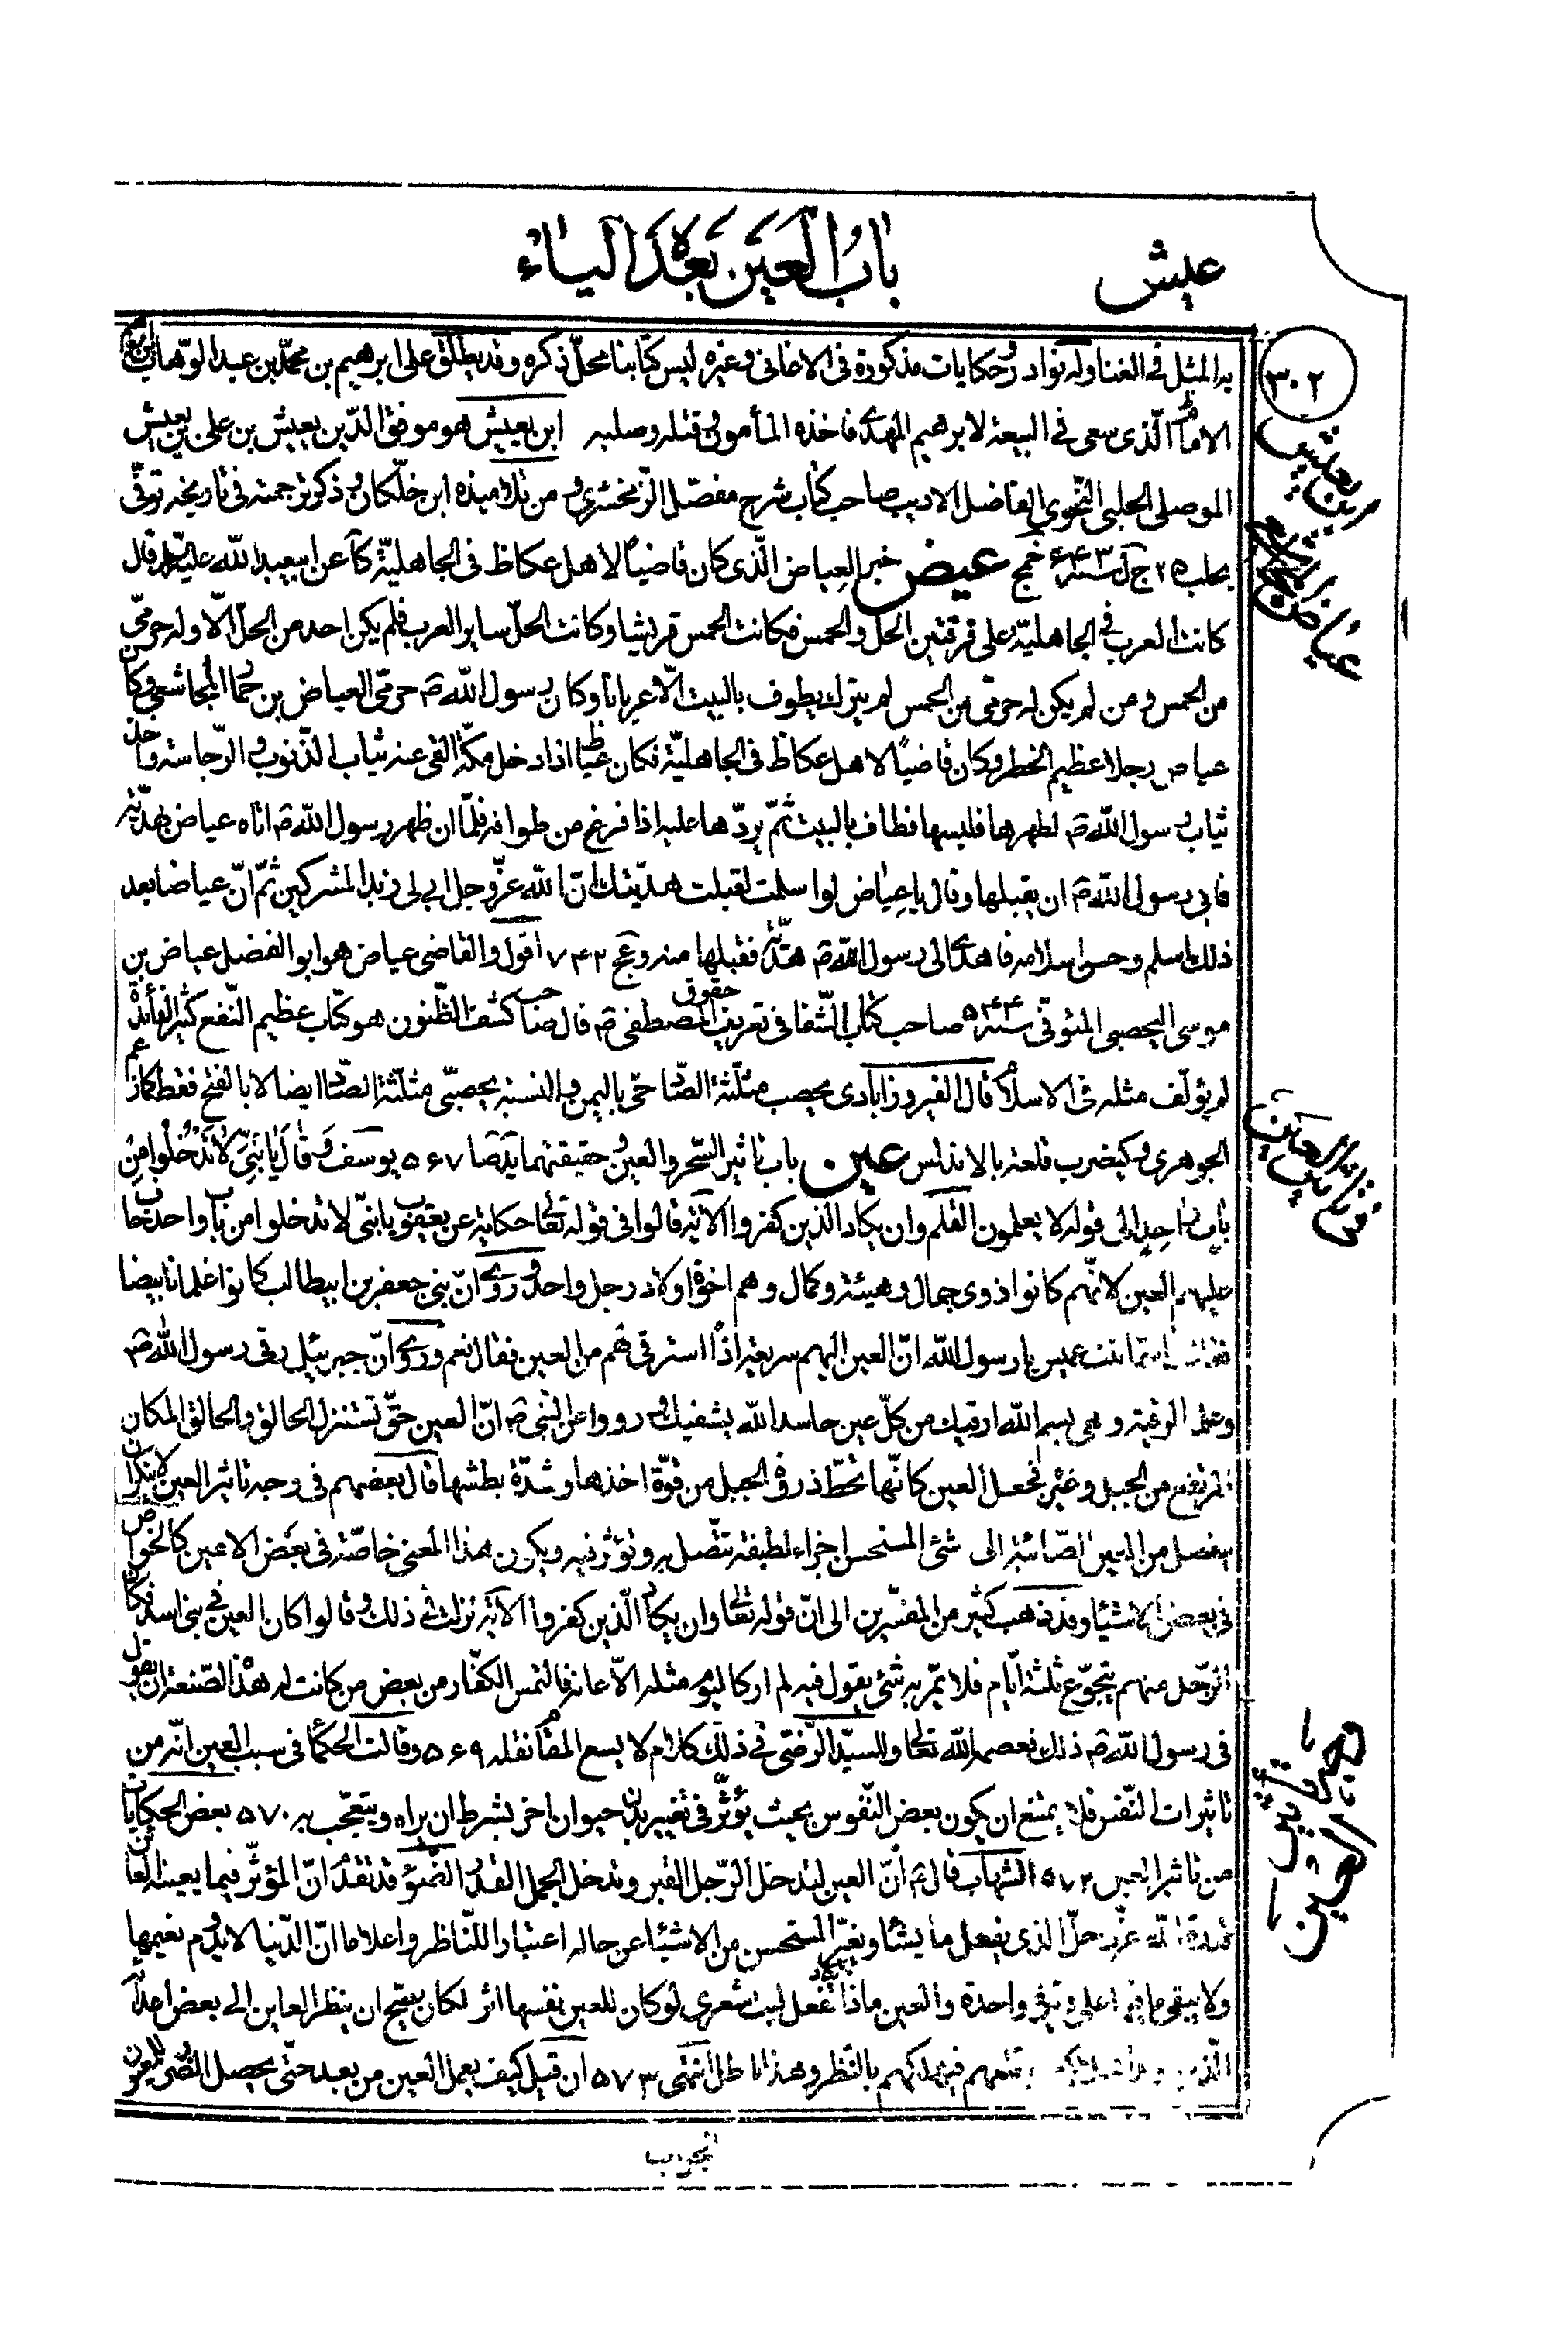 عيش
باب العين بعد الياء
٣٠٢
به المثل في الغنا وله نوادر وحكايات مذكورة في الاغاني وغيره ليس كتابنا محل ذكره وقد يطلق على ابرهيم بن محمد بن عبد الوهاب بن
الامام الذي سعى في البيعة لابرهيم المهدي فاخذه المأمون وقتله وصلبه ابن يعيش هو موفق الدين يعيش بن علي بن يعيش
ابن يعيش
الموصلي الحلبي النحوي الفاضل الاديب صاحب كتاب شرح مفصل الزمخشري ومن تلاميذه ابن خلكان وذكر ترجمته في تاريخه توفي
بحلب ٢٥ ج ل سنة ٦٤٣ خمج عيض خبر العياض الذي كان قاضيًا لاهل عكاظ في الجاهلية كا عن ابيعبد الله عليه السلام قال
كانت العرب في الجاهلية على فرقتين الحل والحمس فكانت الحمس قريشا وكانت الحل ساير العرب فلم يكن احد من الحل الا وله حرمي
من الحمس ومن لم يكن له حرمي من الحمس لم يترك يطوف بالبيت الا عريانا وكان رسول الله ص حرمي العياض بن حمار المجاشعي وكان
عياض رجلا عظيم الخطر وكان قاضيًا لاهل عكاظ في الجاهلية فكان عياض اذا دخل مكة القى عنه ثياب الذنوب والرجاسة واخذ
ثياب رسول الله ص لطهرها فلبسها فطاف بالبيت ثم يردها عليه اذا فرغ من طوافه فلما ان ظهر رسول الله ص اتاه عياض بهدية
فابى رسول الله ص ان يقبلها وقال يا عياض لو اسلمت لقبلت هديتك ان الله عز وجل ابى لي زبد المشركين ثم ان عياضا بعد
ذلك اسلم وحسن اسلامه فاهدى الى رسول الله ص هدية فقبلها منه وعج ٧٤٢ اقول والقاضي عياض هو ابو الفضل عياض بن
موسى اليحصبي المتوفى سنة ٥٤٤ صاحب كتاب الشفا في تعريف حقوق المصطفى ص قال صاحب كشف الظنون هو كتاب عظيم النفع كثير الفائدة
لم يؤلف مثله في الاسلام قال الفيروزابادي يحصب مثلثة الصاد حي باليمن والنسبة يحصبي مثلثة الصاد ايضا لا بالفتح فقط كما زعم
الجوهري وكيضرب قلعة بالاندلس عين باب تاثير السحر والعين وحقيقتهما يد صا ٥٦٧ يوسف وقال يا بني لا تدخلوا من
في تاثير العين
باب واحد الى قوله لا يعلمون القلم وان يكاد الذين كفروا الآية قالوا في قوله تعالى حكاية عن يعقوب يا بني لا تدخلوا من باب واحد خاف
عليهم العين لانهم كانوا ذوي جمال وهيئة وكمال وهم اخوة اولاد رجل واحد وروي ان بني جعفر بن ابيطالب كانوا غلمانا بيضا
فقالت اسماء بنت عميس يا رسول الله ان العين اليهم سريعة اذا استرقي لهم من العين فقال نعم وروي ان جبرئيل رقى رسول الله ص
وعلمه الرقية وهي بسم الله ارقيك من كل عين حاسد الله يشفيك ورووا عن النبي ص ان العين حق تستنزل الحالق والحالق المكان
المرتفع من الجبل وغيره فجعل العين كانها تحط ذروة الجبل من قوة اخذها وشدة بطشها قال بعضهم في وجه تاثير العين لا ينكر ان
ينفصل من العين الصائبة الى شئ المستحسن اجزاء لطيفة تتصل به وتؤثر فيه ويكون هذا المعنى خاصة في بعض الاعين كالخواص
في بعض الاشياء وقد ذهب كثير من المفسرين الى ان قوله تعالى وان يكاد الذين كفروا الآية نزلت في ذلك وقالوا كان العين في بني اسد فكان
الرجل منهم يتجوع ثلثة ايام فلا يمر به شئ يقول فيه لم ار كاليوم مثله الا عانه فالتمس الكفار من بعض من كانت له هذه الصنعة ان يقول
في رسول الله ص ذلك فعصمه الله تعالى وللسيد الرضي في ذلك كلام لا يسع المقام نقله ٥٦٩ وقالت الحكماء في سبب العين انه من
تاثيرات النفس فلا يمتنع ان يكون بعض النفوس بحيث يؤثر في تغيير بدن حيوان اخر بشرط ان يراه ويتعجب به ٥٧٠ بعض الحكايات
تاثير العين
من تاثير العين ٥٧٢ الشهاب قال ص ان العين ليدخل الرجل القبر وتدخل الجمل القدر الضوء قد تقدم ان المؤثر فيما يعينه العائن
قدرة الله عز وجل الذي يفعل ما يشاء ويغير المستحسن من الاشياء عن حاله اعتبارا للناظر واعلاما ان الدنيا لا يدوم نعيمها
ولا يبقى ما فيها على وتيرة واحدة والعين ماذا تفعل ليت شعري لو كان للعين نفسها اثر لكان يصح ان ينظر العاين الى بعض اعدائه
الذين بالنظر وهذا باطل انتهى ٥٧٣ ان قيل كيف يعمل العين من بعد حتى يحصل الضرر للمعيون